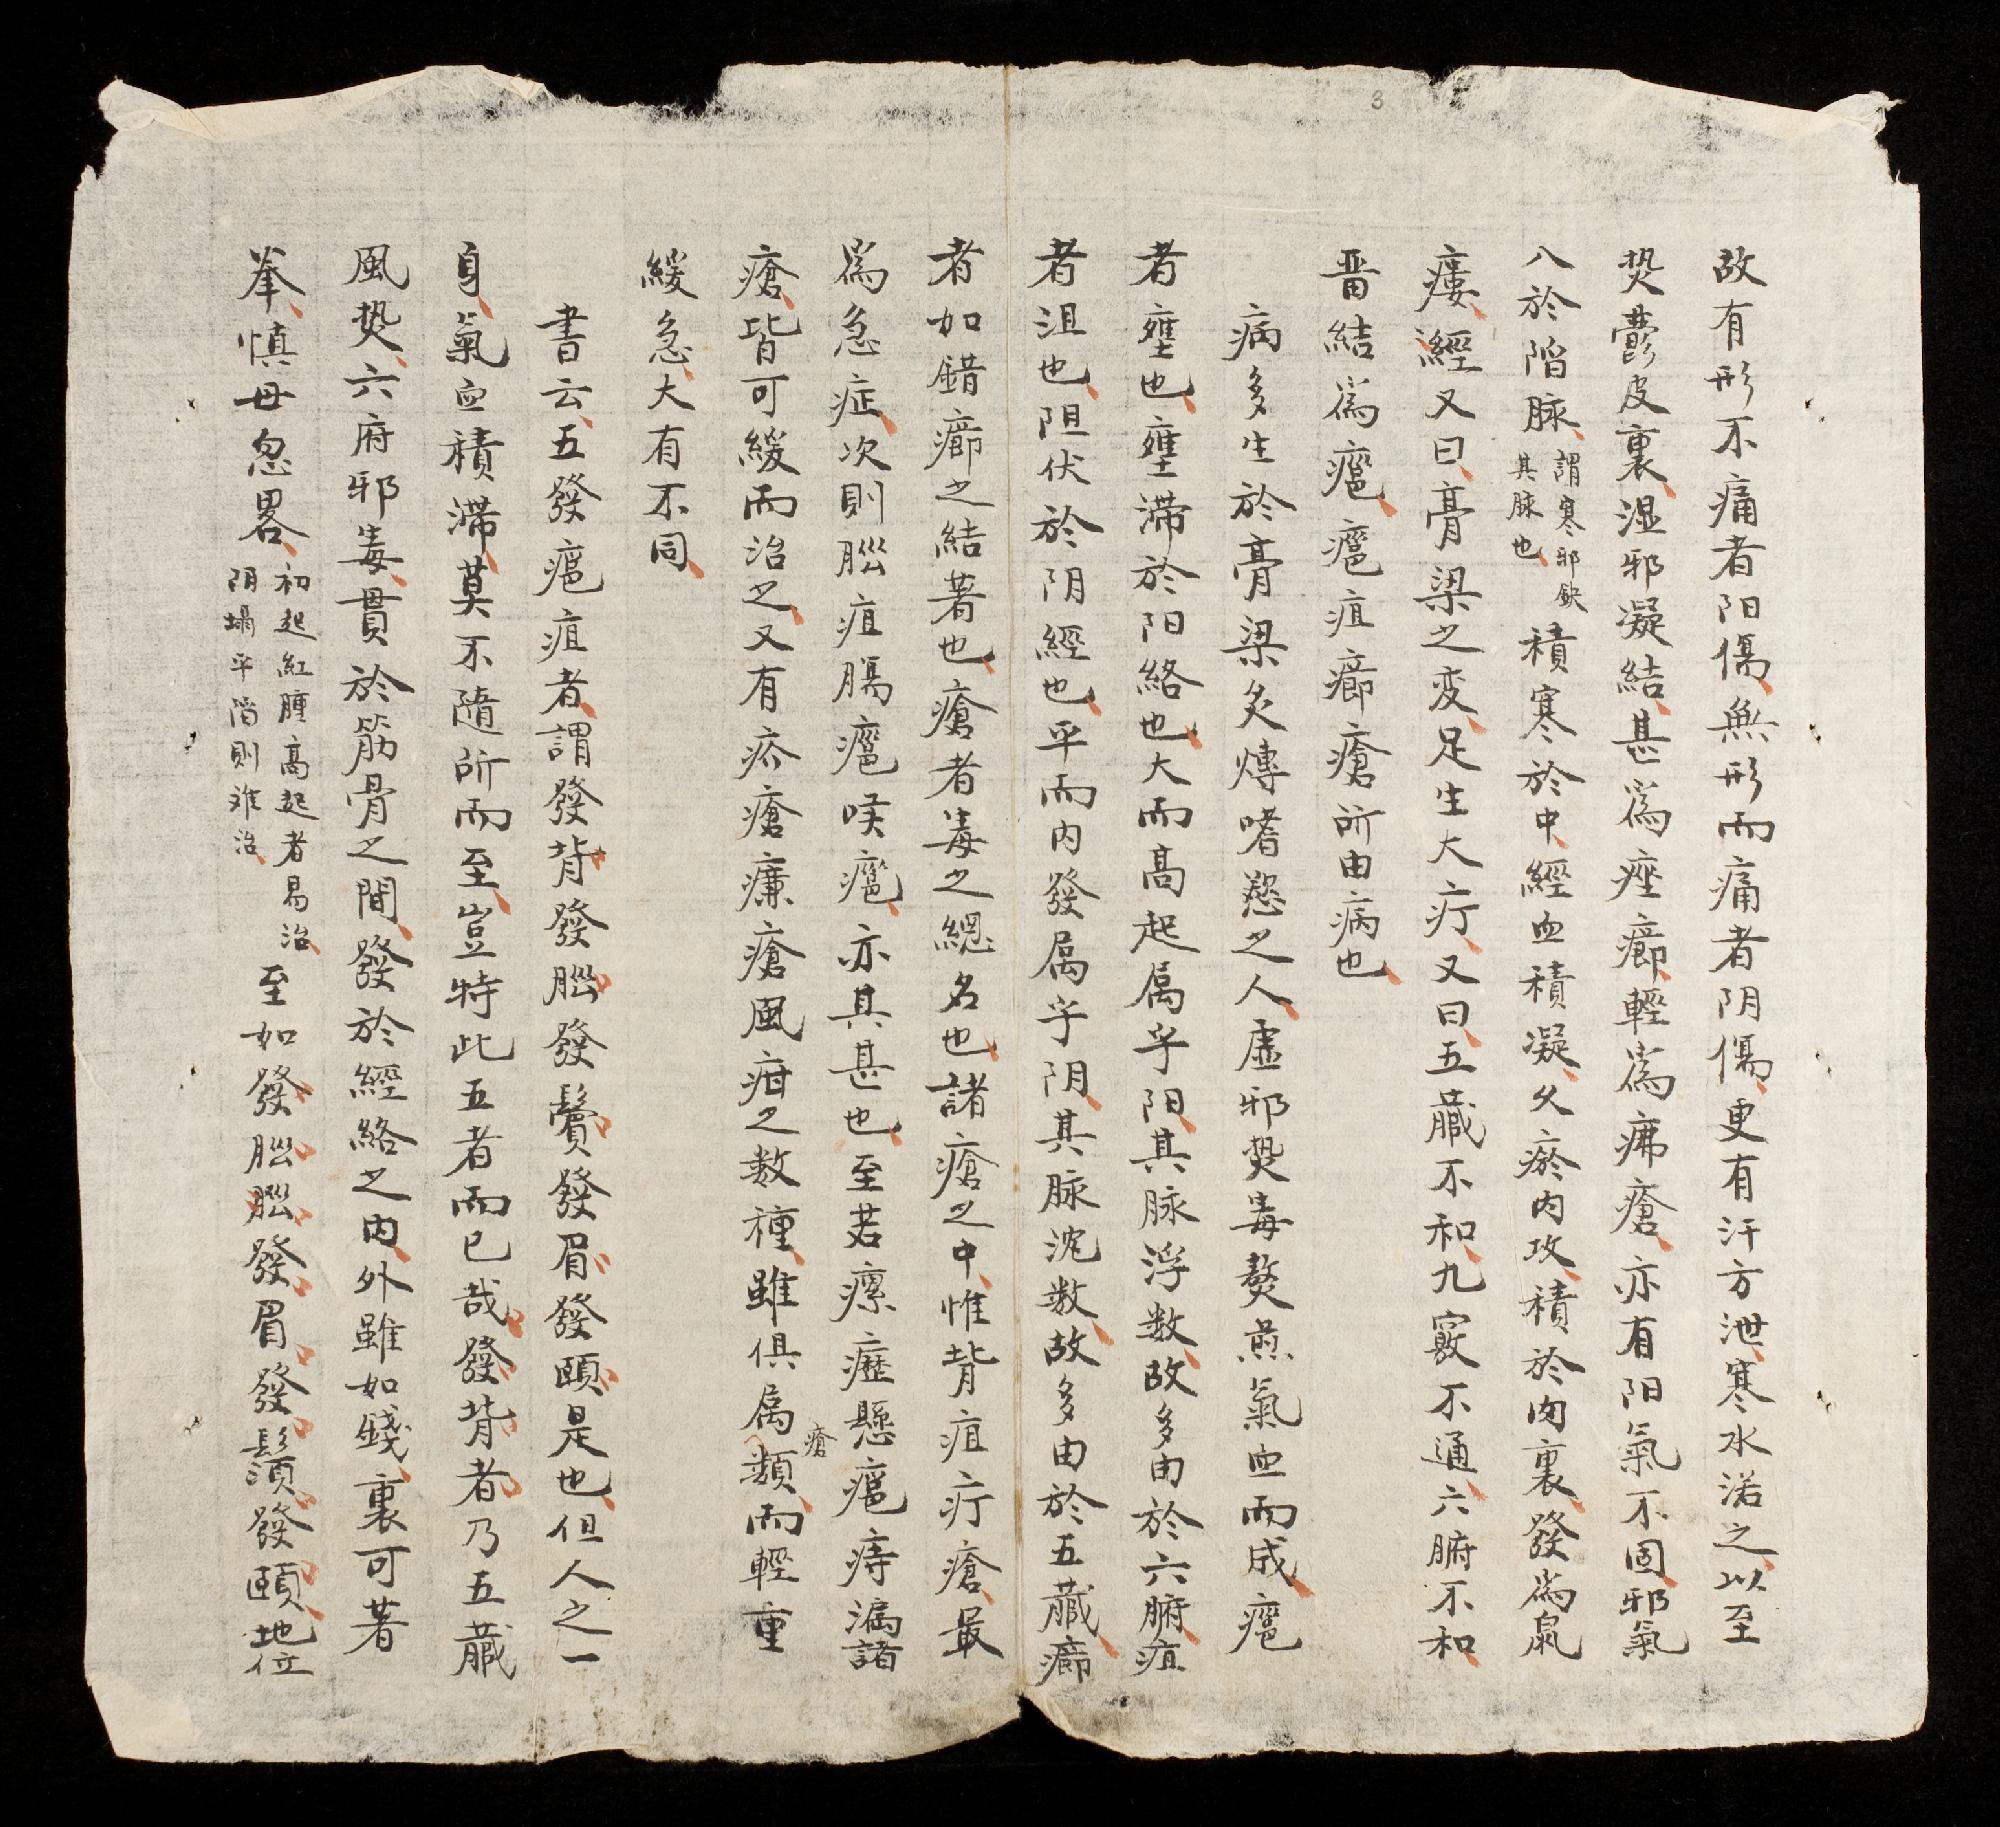 3
故有形不痛者阳傷、無形而痛者阴傷、更有汗方泄、寒水浴之、以至
熱鬱皮裏、湿邪凝結、甚為痤癤、輕為疿瘡、亦有阳氣不固、邪氣
入於陷脉、謂寒邪缺其脉也、積寒於中、經血積凝、久瘀内攻、積於肉裏、發為鼠
瘻、經又曰、膏梁之变、足生大疔、又曰、五藏不和、九竅不通、六腑不和、
畱結為癰、癰疽癤瘡所由病也、
病多生於膏梁炙煿嗜慾之人、虛邪熱毒熬煎氣血而成、癰
者壅也、壅滯於阳絡也、大而高起属乎阳、其脉浮数、故多由於六腑、疽
者沮也、阻伏於阴經也、平而内發属乎阴、其脉沈数、故多由於五藏、癤
者如錯癤之結著也、瘡者毒之總名也、諸瘡之中、惟背疽疔瘡、最
為急症、次則腦疽腸癰喉癰、亦其甚也、至若瘰癧懸癰痔漏諸
瘡、皆可緩而治之、又有疥瘡臁瘡風疳之数種、雖俱属瘡類、而輕重
緩急、大有不同、
書云、五發癰疽者、謂發背發腦發鬢發眉發頤是也、但人之一
身、氣血積滯、莫不隨所而至、豈特此五者而已哉、發背者、乃五藏
風熱、六府邪毒、貫於筋骨之間、發於經絡之内、外雖如錢、裏可著
拳、慎毋忽畧、初起紅腫高起者易治、阴塌平陷則难治、至如發腦、腦發眉發鬚發頤、地位